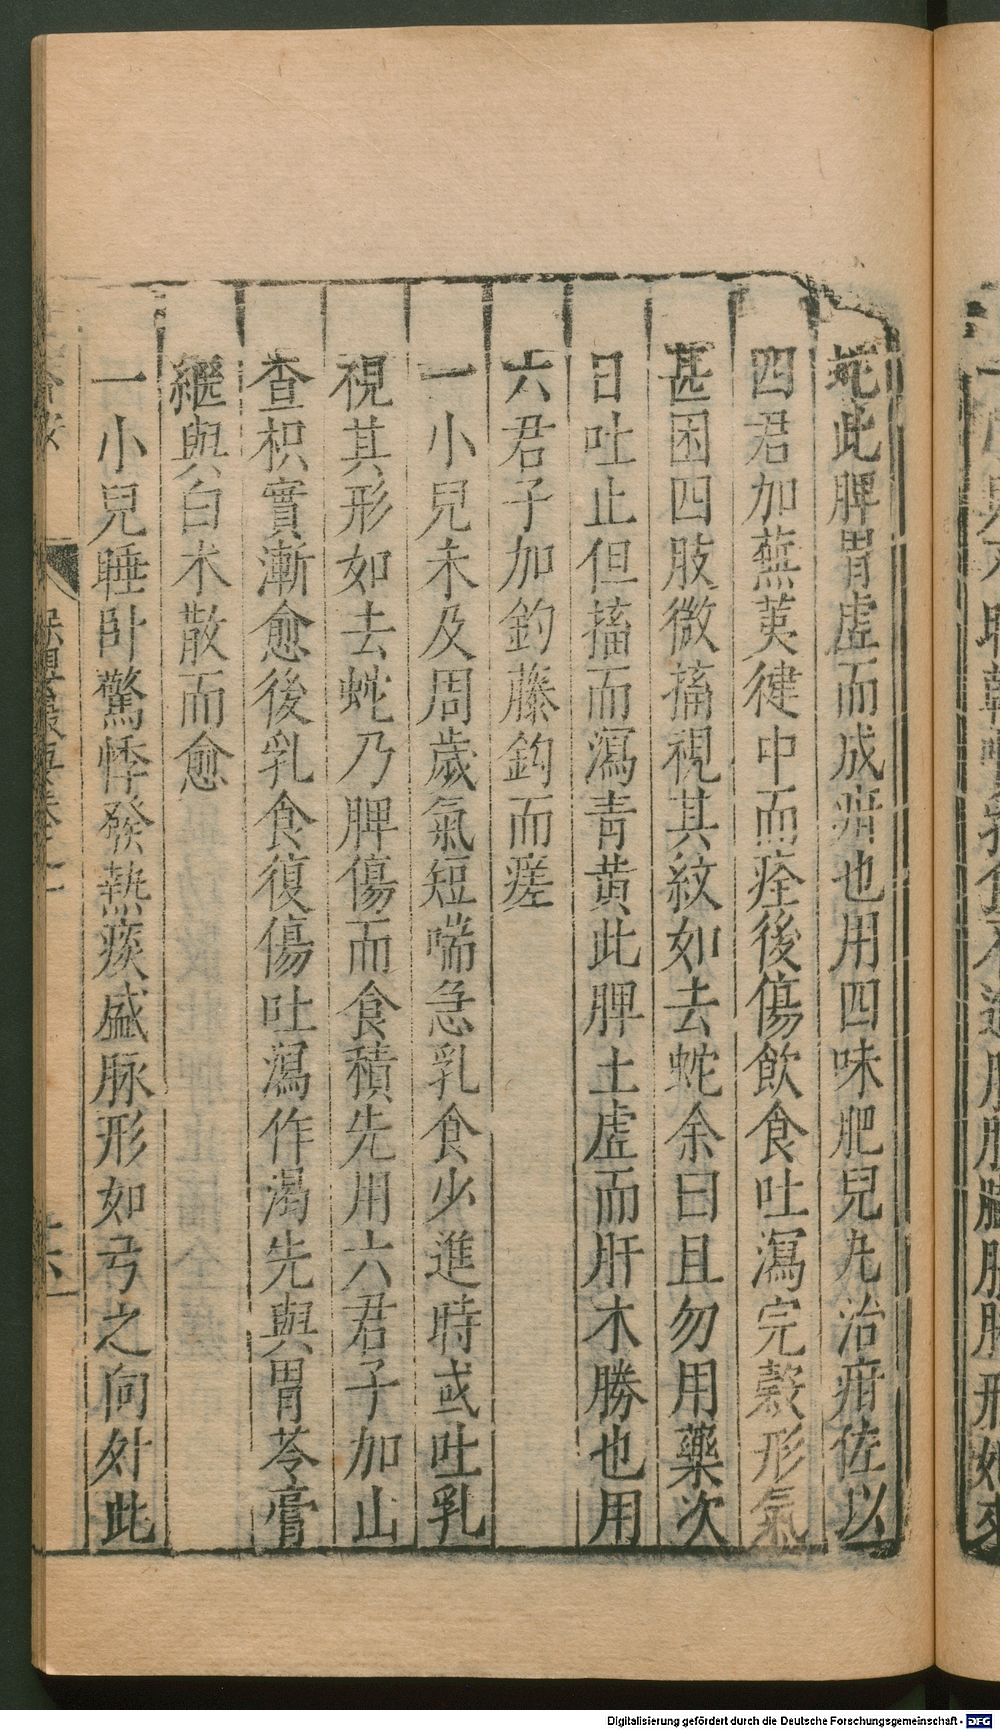 蛇此脾胃虛而成疳也用四味肥兒丸治疳佐以
四君加蕪荑徤中而痊後傷飲食吐瀉完穀形氣
甚困四肢微搐視其紋如去蛇余曰且勿用藥次
日吐止但搐而瀉青黃此脾土虛而肝木勝也用
六君子加釣藤鈎而瘥
一小兒未及周歲氣短喘急乳食少進時或吐乳
視其形如去蛇乃脾傷而食積先用六君子加山
查枳實漸愈後乳食復傷吐瀉作渴先與胃苓膏
繼與白朮散而愈
一小兒睡卧驚悸發熱痰盛脉形如弓之向外此
保嬰撮要卷之一
Digitalisierung gefördert durch die Deutsche Forschungsgemeinschaft - DFG